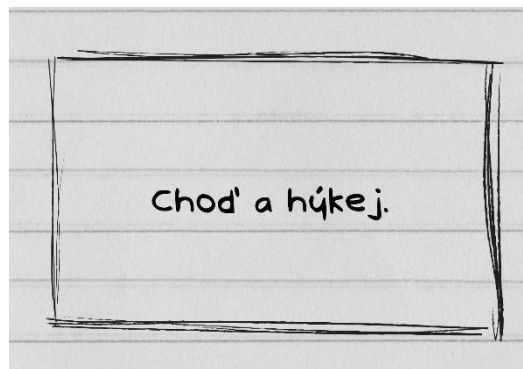 Choď a hýkej.